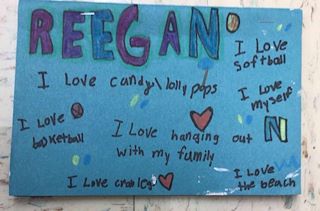 REEGAN
I Love
softball
I Love candy\lollypops
I Love
myself
I Love
basketball
I Love hanging out
with my family
N
I Love crab legs
I Love
the beach